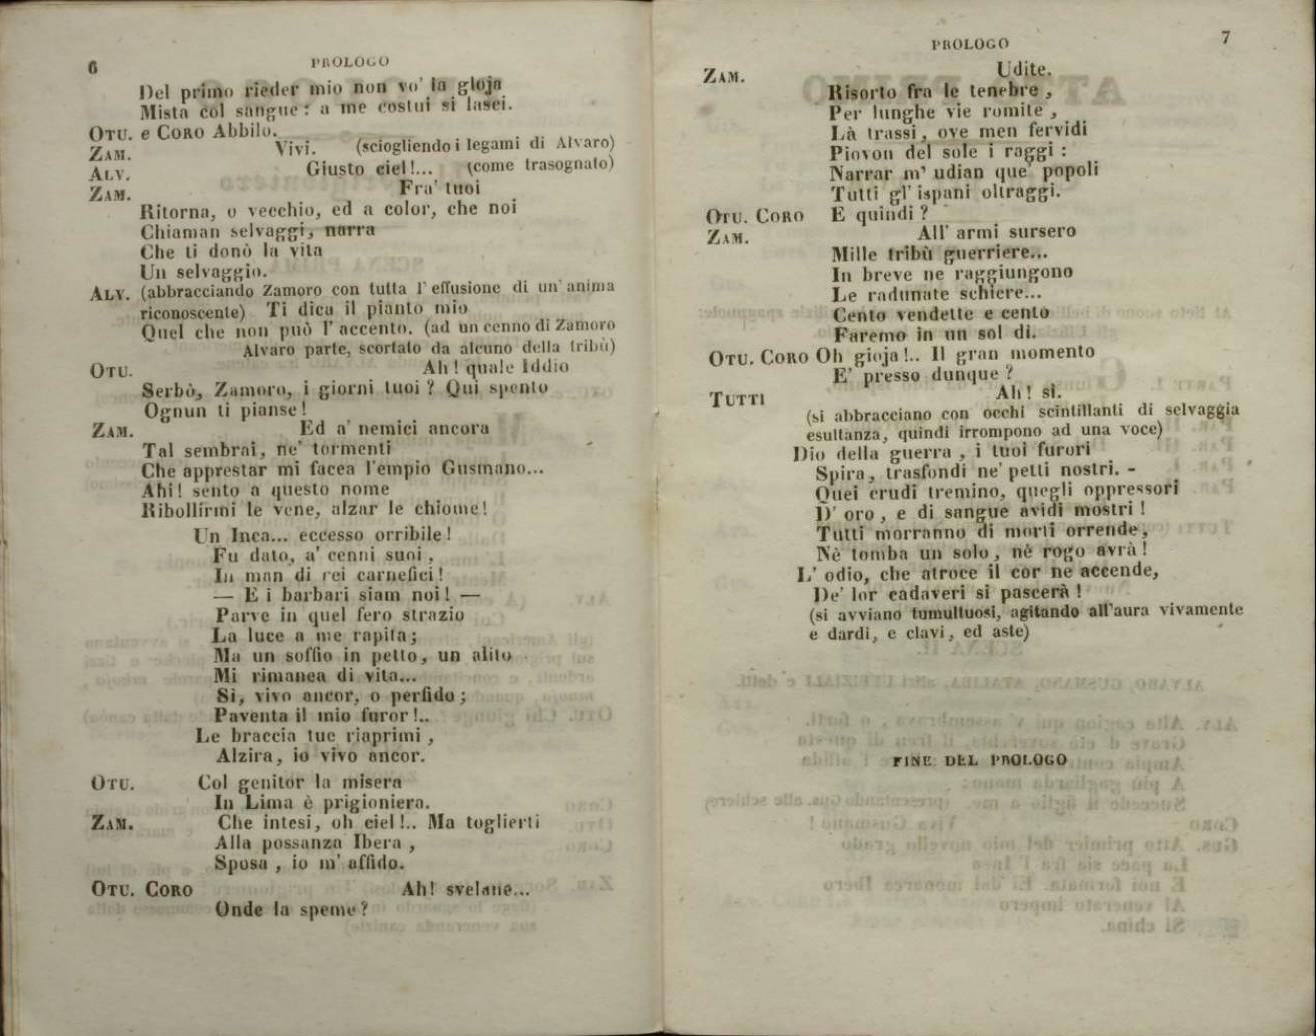 6
PROLOGO
Del primo rieder mio non vo' la gioja
Mista col sangue: a me costui si lasci.
OTU. e CORO Abbilo.
ZAM. Vivi. (sciogliendo i legami di Alvaro)
ALV. Giusto ciel!... (come trasognato)
ZAM. Fra' tuoi
Ritorna, o vecchio, ed a color, che noi
Chiaman selvaggi, narra
Che ti donò la vita
Un selvaggio.
ALV. (abbracciando Zamoro con tutta l'effusione di un'anima
riconoscente) Ti dica il pianto mio
Quel che non può l'accento. (ad un cenno di Zamoro
Alvaro parte, scortato da alcuno della tribù)
OTU. Ah! quale Iddio
Serbò, Zamoro, i giorni tuoi? Qui spento
Ognun ti pianse!
ZAM. Ed a' nemici ancora
Tal sembrai, ne' tormenti
Che apprestar mi facea l'empio Gusmano...
Ahi! sento a questo nome
Ribollirmi le vene, alzar le chiome!
Un Inca... eccesso orribile!
Fu dato, a' cenni suoi,
In man di rei carnefici!
— E i barbari siam noi! —
Parve in quel fero strazio
La luce a me rapita;
Ma un soffio in petto, un alito
Mi rimanea di vita...
Sì, vivo ancor, o perfido;
Paventa il mio furor!..
Le braccia tue riaprimi,
Alzira, io vivo ancor.
OTU. Col genitor la misera
In Lima è prigioniera.
ZAM. Che intesi, oh ciel!.. Ma toglierti
Alla possanza Ibera,
Sposa, io m' affido.
OTU. CORO Ah! svelane...
Onde la speme?
PROLOGO
7
ZAM. Udite.
Risorto fra le tenebre,
Per lunghe vie romite,
Là trassi, ove men fervidi
Piovon del sole i raggi:
Narrar m' udian que' popoli
Tutti gl' ispani oltraggi.
OTU. CORO E quindi?
ZAM. All' armi sursero
Mille tribù guerriere...
In breve ne raggiungono
Le radunate schiere...
Cento vendette e cento
Faremo in un sol dì.
OTU. CORO Oh gioja!.. Il gran momento
E' presso dunque?
TUTTI Ah! sì.
(si abbracciano con occhi scintillanti di selvaggia
esultanza, quindi irrompono ad una voce)
Dio della guerra, i tuoi furori
Spira, trasfondi ne' petti nostri. -
Quei crudi tremino, quegli oppressori
D' oro, e di sangue avidi mostri!
Tutti morranno di morti orrende,
Nè tomba un solo, nè rogo avrà!
L' odio, che atroce il cor ne accende,
De' lor cadaveri si pascerà!
(si avviano tumultuosi, agitando all'aura vivamente
e dardi, e clavi, ed aste)
FINE DEL PROLOGO